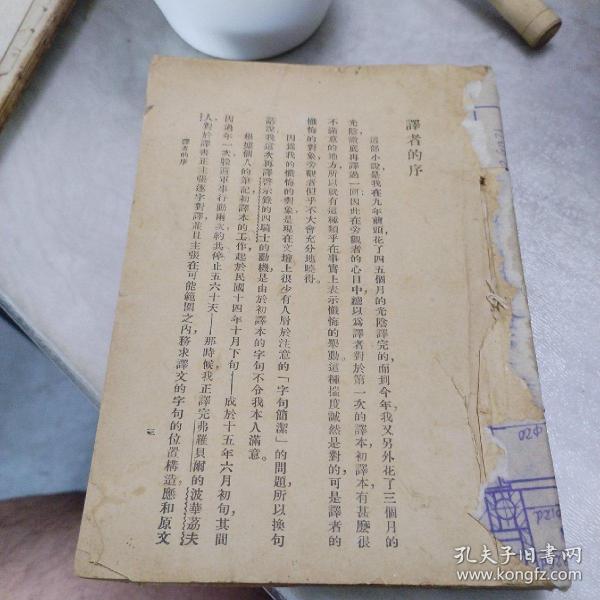 譯者的序
這部小說，是我在九年前頭，花了四五個月的光陰譯完的，而到今年，我又另外花了三個月的
光陰，徹底再譯過一回，因此在旁觀者的心目中，總以爲譯者對於第一次的譯本，初譯本，有甚麽很
不滿意的地方，所以就有這種類乎在事實上表示懺悔的舉動。這種揣度誠然是對的，可是譯者的
懺悔的對象，旁觀者但乎不大會充分地曉得。
因爲我的懺悔的對象，是現在文壇上很少有人屑於注意的「字句簡潔」的問題，所以換句
話說，我這次再譯啓示錄的四騎士的動機，是由於初譯本的字句不令我本人滿意。
根據個人的筆記，初譯本的工作，起於民國十四年十月下旬——成於十五年六月初旬，其間
因過年一次，般置軍事行動兩次，約共停止五六十天——那時候，我正譯完弗羅貝爾的波華荔夫
人，對於譯書正主張逐字對譯，並且主張在可能範圍之內，務求譯文的字句的位置構造，應和原文
譯者的序
三
02Φ
孔夫子旧書网
www.kongfz.com